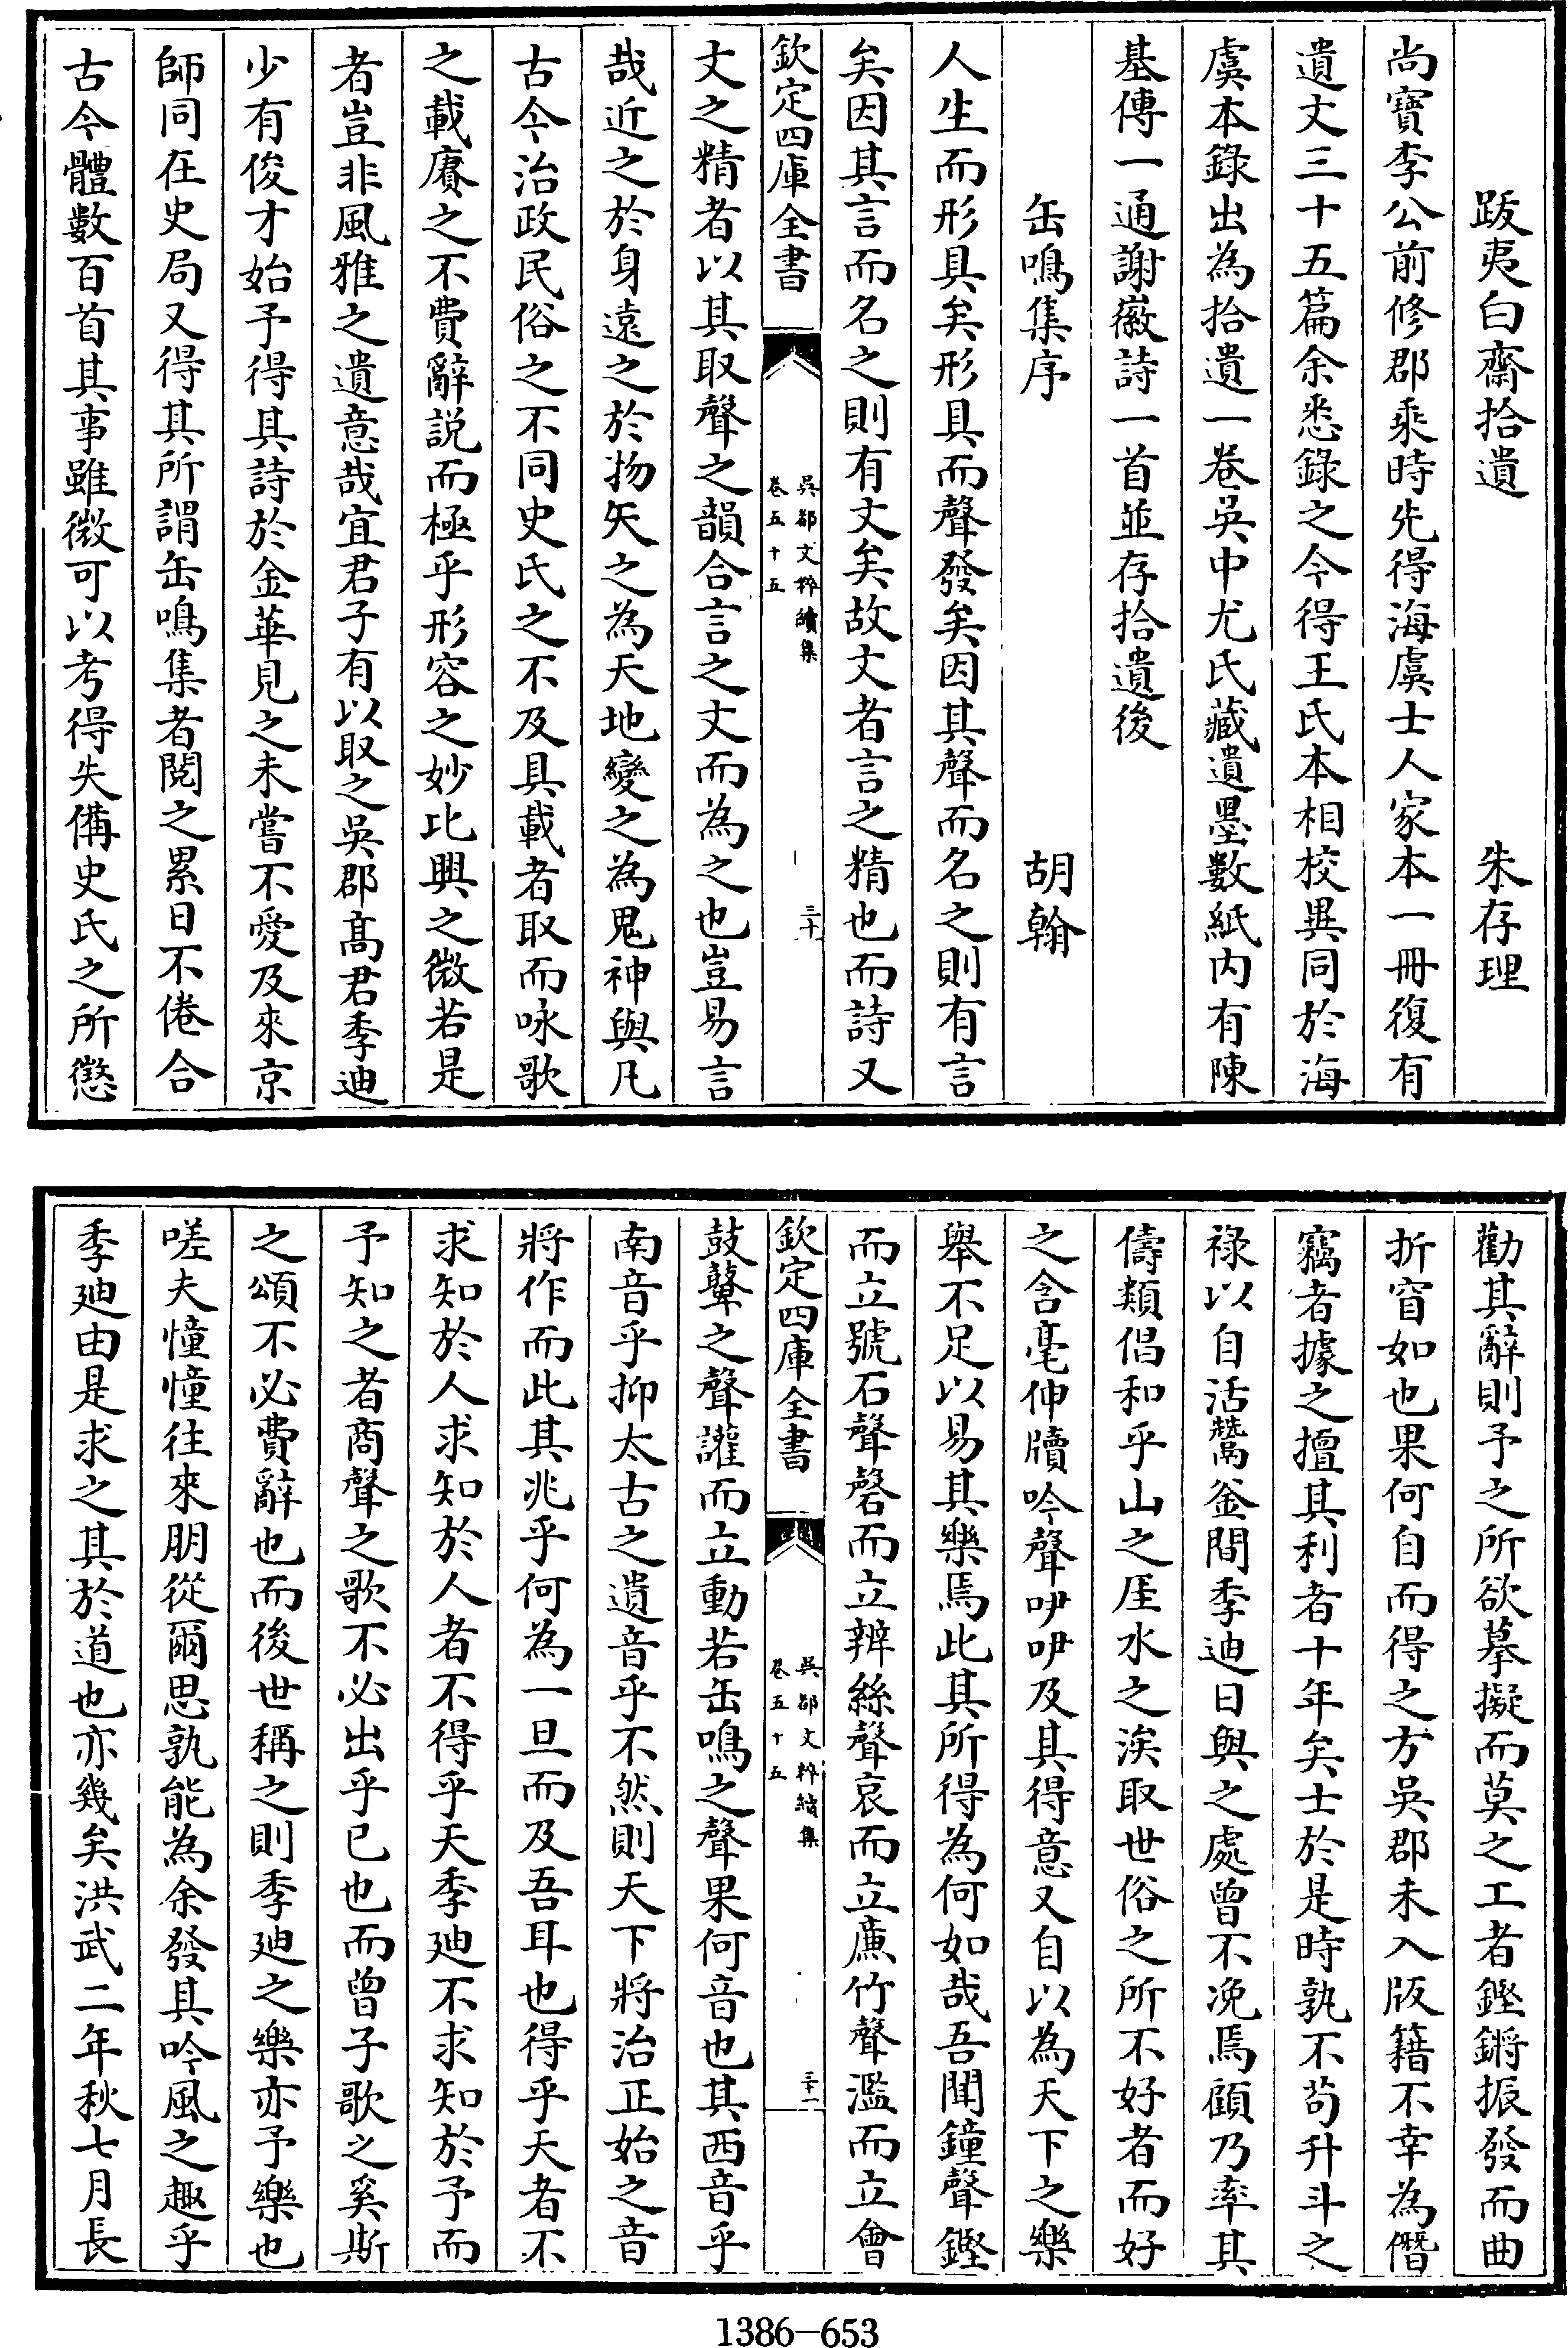 跋夷白齋拾遺　朱存理
尚寶李公前修郡乘時先得海虞士人家本一冊復有
遺文三十五篇余悉錄之今得王氏本相校異同於海
虞本錄出為拾遺一卷吳中尤氏藏遺墨數紙内有陳
基傳一通謝徽詩一首並存拾遺後
缶鳴集序　胡翰
人生而形具矣形具而聲發矣因其聲而名之則有言
矣因其言而名之則有文矣故文者言之精也而詩又
欽定四庫全書
吳都文粹續集
卷五十五
三十
文之精者以其取聲之韻合言之文而為之也豈易言
哉近之於身遠之於物矢之為天地變之為鬼神與凡
古今治政民俗之不同史氏之不及具載者取而咏歌
之載賡之不費辭説而極乎形容之妙比興之微若是
者豈非風雅之遺意哉宜君子有以取之吳郡髙君季迪
少有俊才始予得其詩於金華見之未嘗不愛及來京
師同在史局又得其所謂缶鳴集者閲之累日不倦合
古今體數百首其事雖微可以考得失備史氏之所懲
勸其辭則予之所欲摹擬而莫之工者鏗鏘振發而曲
折窅如也果何自而得之方吳郡未入版籍不幸為僭
竊者據之擅其利者十年矣士於是時孰不苟升斗之
祿以自活鬵釜間季迪日與之處曾不凂焉顧乃率其
儔類倡和乎山之厓水之涘取世俗之所不好者而好
之含毫伸牘吟聲咿咿及其得意又自以為天下之樂
舉不足以易其樂焉此其所得為何如哉吾聞鐘聲鏗
而立號石聲磬而立辨絲聲哀而立廉竹聲濫而立會
欽定四庫全書
吳都文粹續集
卷五十五
三十一
鼓鼙之聲讙而立動若缶鳴之聲果何音也其西音乎
南音乎抑太古之遺音乎不然則天下將治正始之音
將作而此其兆乎何為一旦而及吾耳也得乎天者不
求知於人求知於人者不得乎天季迪不求知於予而
予知之者商聲之歌不必出乎已也而曾子歌之奚斯
之頌不必費辭也而後世稱之則季迪之樂亦予樂也
嗟夫憧憧往來朋從爾思孰能為余發其吟風之趣乎
季迪由是求之其於道也亦幾矣洪武二年秋七月長
1386-653